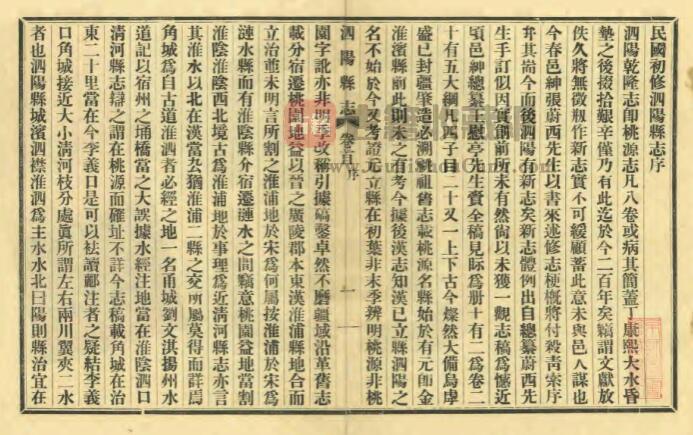 民國初修泗陽縣志序
泗陽乾隆志即桃源志凡八卷或病其簡蓋丁康熙大水昏
墊之後掇拾艱辛僅乃有此迄於今二百年矣竊謂文獻放
佚久將無徵刱作新志實不可緩顧蓄此意未與邑人謀也
今春邑紳張蔚西先生以書來述修志梗槪將付殺靑索序
弁其耑今而後泗陽有新志矣新志體例出自總纂蔚西先
生手訂似因實創前所未有然尙以未獲一觀志稿爲憾近
頃邑紳總纂王慰亭先生賫全稿見眎爲册十有二爲卷二
十有五大綱凡四子目二十又一上下古今燦然大備烏虖
盛已封疆肇造必溯桃祖舊志載桃源名縣始於有元卽金
淮濱縣前此則未之有考今據後漢志知漢已立縣泗陽之
名不始於今又考證元立縣在初葉非末季辨明桃源非桃
泗陽縣志 卷首 序
一
園字訛亦非明季改稱引據碻鑿卓然不磨疆域沿革舊志
載分宿遷桃園地益以晉之廣陵郡本東漢淮浦縣地合而
立治蓋未明言所割之淮浦地於宋爲何屬按淮浦於宋爲
漣水縣而有淮陰縣介宿遷漣水之間竊意桃園益地當割
淮陰淮陰西北境古爲淮浦地於事理爲近淸河縣志亦言
其淮水以北在漢當玄猶淮浦二縣之交所屬莫得而詳焉
角城爲自古道淮泗者必經之地一名甬城劉文淇揚州水
道記以宿州之埇橋當之大誤據水經注地當在淮陰泗口
淸河縣志辯之謂在桃源而確址不詳今志稿載角城在治
東二十里當在今李義口是可以袪讀酈注者之疑結李義
口角城接近大小淸河枝分處眞所謂左右兩川翼夾二水
者也泗陽縣城濱泗襟淮泗爲主水水北曰陽則縣治宜在